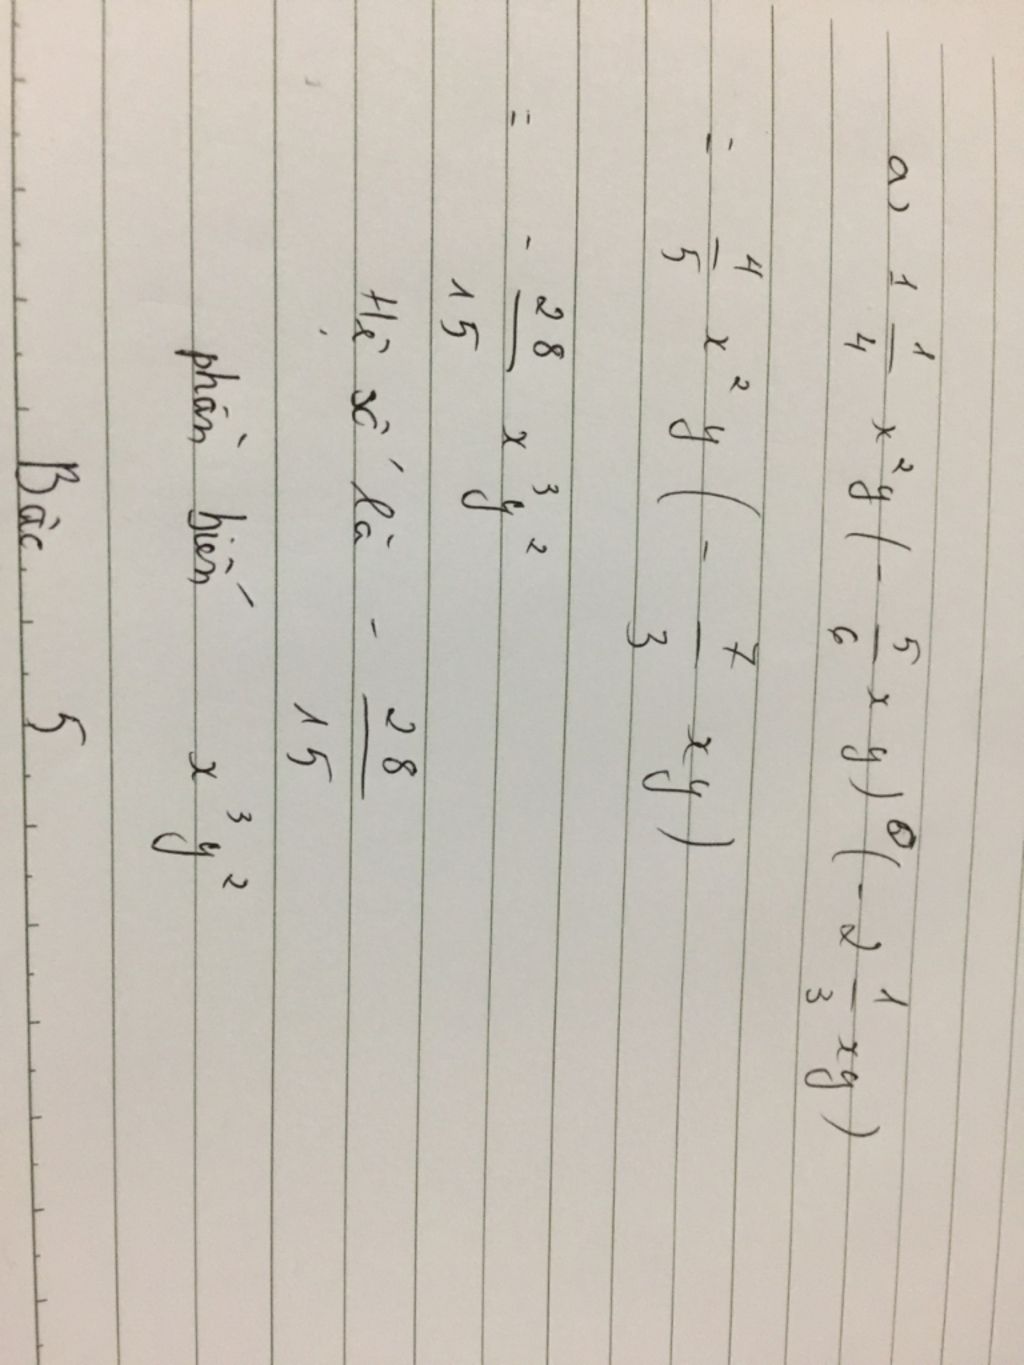 a) 1 1/4 x²y (- 5/6 xy)⁰ (- 2 1/3 xy)
= 4/5 x²y (- 7/3 xy)
= - 28/15 x³y²
Hệ số là - 28/15
phần biến x³y²
Bậc 5